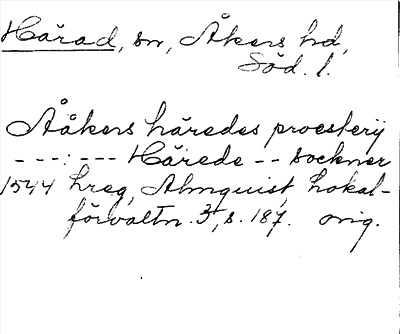 Härad, sn, Åkers hd,
Söd. l.
Aåkers häredes proesterij
- - - : - - - Härede - - sockner
1544 hreg, Almquist, Lokal-
förvaltn. 3, s. 187. orig.